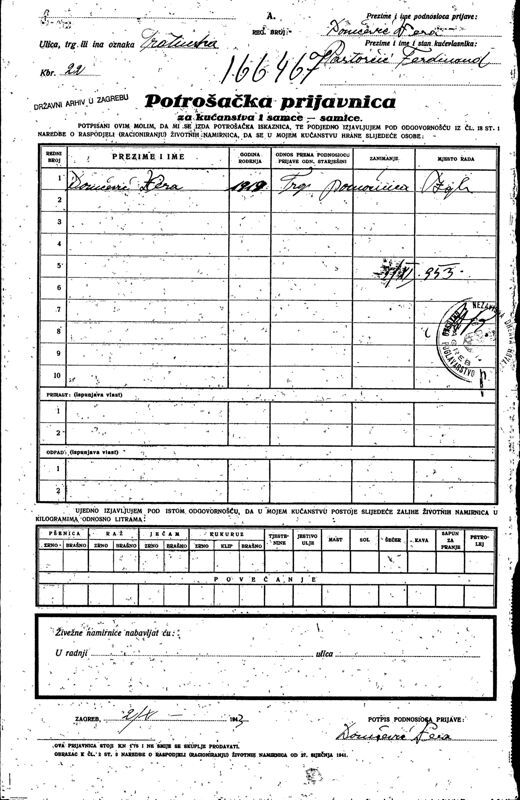 A.
REG. BROJ:
Prezime i ime podnosioca prijave:
Domčević Vera
Ulica, trg. ili ina oznaka Tratinska
Prezime i ime i stan kućevlasnika:
Ferdinand
Kbr. 22
166467
DRŽAVNI ARHIV U ZAGREBU
Potrošačka prijavnica
za kućanstva i samce — samice.
POTPISANI OVIM MOLIM, DA MI SE IZDA POTROŠAČKA ISKAZNICA, TE PODJEDNO IZJAVLJUJEM POD ODGOVORNOŠĆU IZ ČL. 18 ST. 1
NAREDBE O RASPODJELI (RACIONIRANJU) ŽIVOTNIH NAMIRNICA, DA SE U MOJEM KUĆANSTVU HRANE SLIJEDEĆE OSOBE:
REDNI BROJ PREZIME I IME GODINA ROĐENJA ODNOS PREMA PODNOSIOCU PRIJAVE ODN. STARJEŠINI ZANIMANJE MJESTO RADA
1 Domčević Vera 1919 Trg. pomoćnica Zgb
2
3
4
5
953.
6
7
8
9
10
NEZAVISNA DRŽAVA
POGLAVARSTVO
ZAGREB
PRIRAST: (ispunjava vlast)
1
2
OTPAD: (ispunjava vlast)
1
2
UJEDNO IZJAVLJUJEM POD ISTOM ODGOVORNOŠĆU, DA U MOJEM KUĆANSTVU POSTOJE SLIJEDEĆE ZALIHE ŽIVOTNIH NAMIRNICA U
KILOGRAMIMA ODNOSNO LITRAMA:
PŠENICA RAŽ JEČAM KUKURUZ TJESTENINE JESTIVO ULJE MAST SOL ŠEĆER KAVA SAPUN ZA PRANJE PETROLEJ
ZRNO BRAŠNO ZRNO BRAŠNO ZRNO BRAŠNO ZRNO KLIP BRAŠNO
POVEĆANJE
Živežne namirnice nabavljat ću:
U radnji ulica
ZAGREB, 2/X — 1943
POTPIS PODNOSIOCA PRIJAVE:
Domčević Vera
OVA PRIJAVNICA STOJI KN 0.75 I NE SMIJE SE SKUPLJE PRODAVATI.
OBRAZAC K ČL. 2 ST. 3 NAREDBE O RASPODJELI (RACIONIRANJU) ŽIVOTNIH NAMIRNICA OD 27. SIJEČNJA 1941.